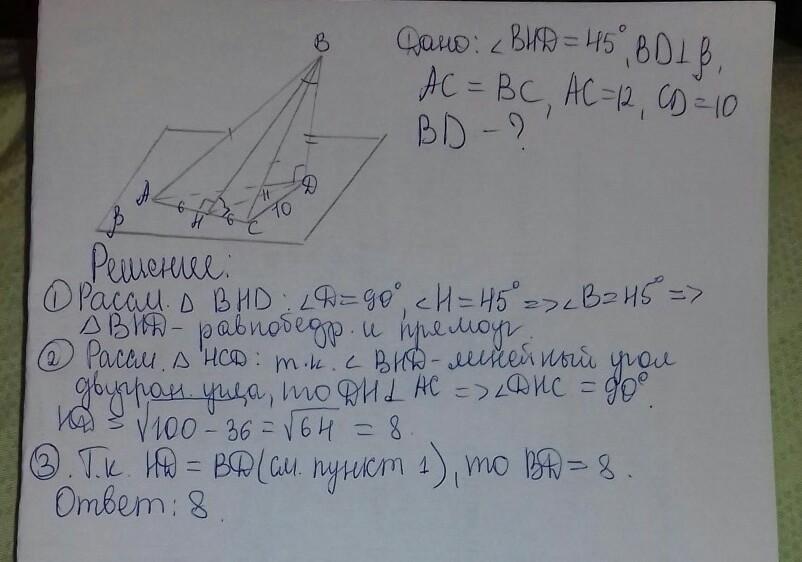 Дано: ∠BHD = 45°, BD⊥β,
AC = BC, AC = 12, CD = 10
BD - ?
B
A
D
H
C
β
6
6
10
Решение:
① Рассм. △ BHD: ∠D = 90°, ∠H = 45° => ∠B = 45° =>
△ BHD - равнобедр. и прямоуг.
② Рассм. △ HCD: т.к. ∠ BHD - линейный угол
двугран. угла, то DH⊥AC => ∠DHC = 90°.
HD = √100 - 36 = √64 = 8.
③. Т.к. HD = BD (см. пункт 1), то BD = 8.
Ответ: 8.